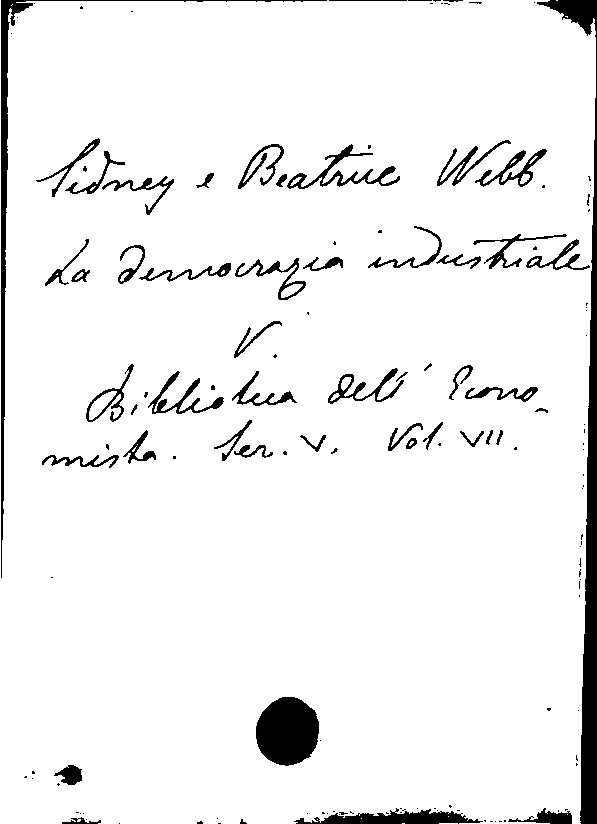 Sidney e Beatrice Webb.
La democrazia industriale
V.
Biblioteca dell' Econo-
mista. Ser. V. Vol. VII.